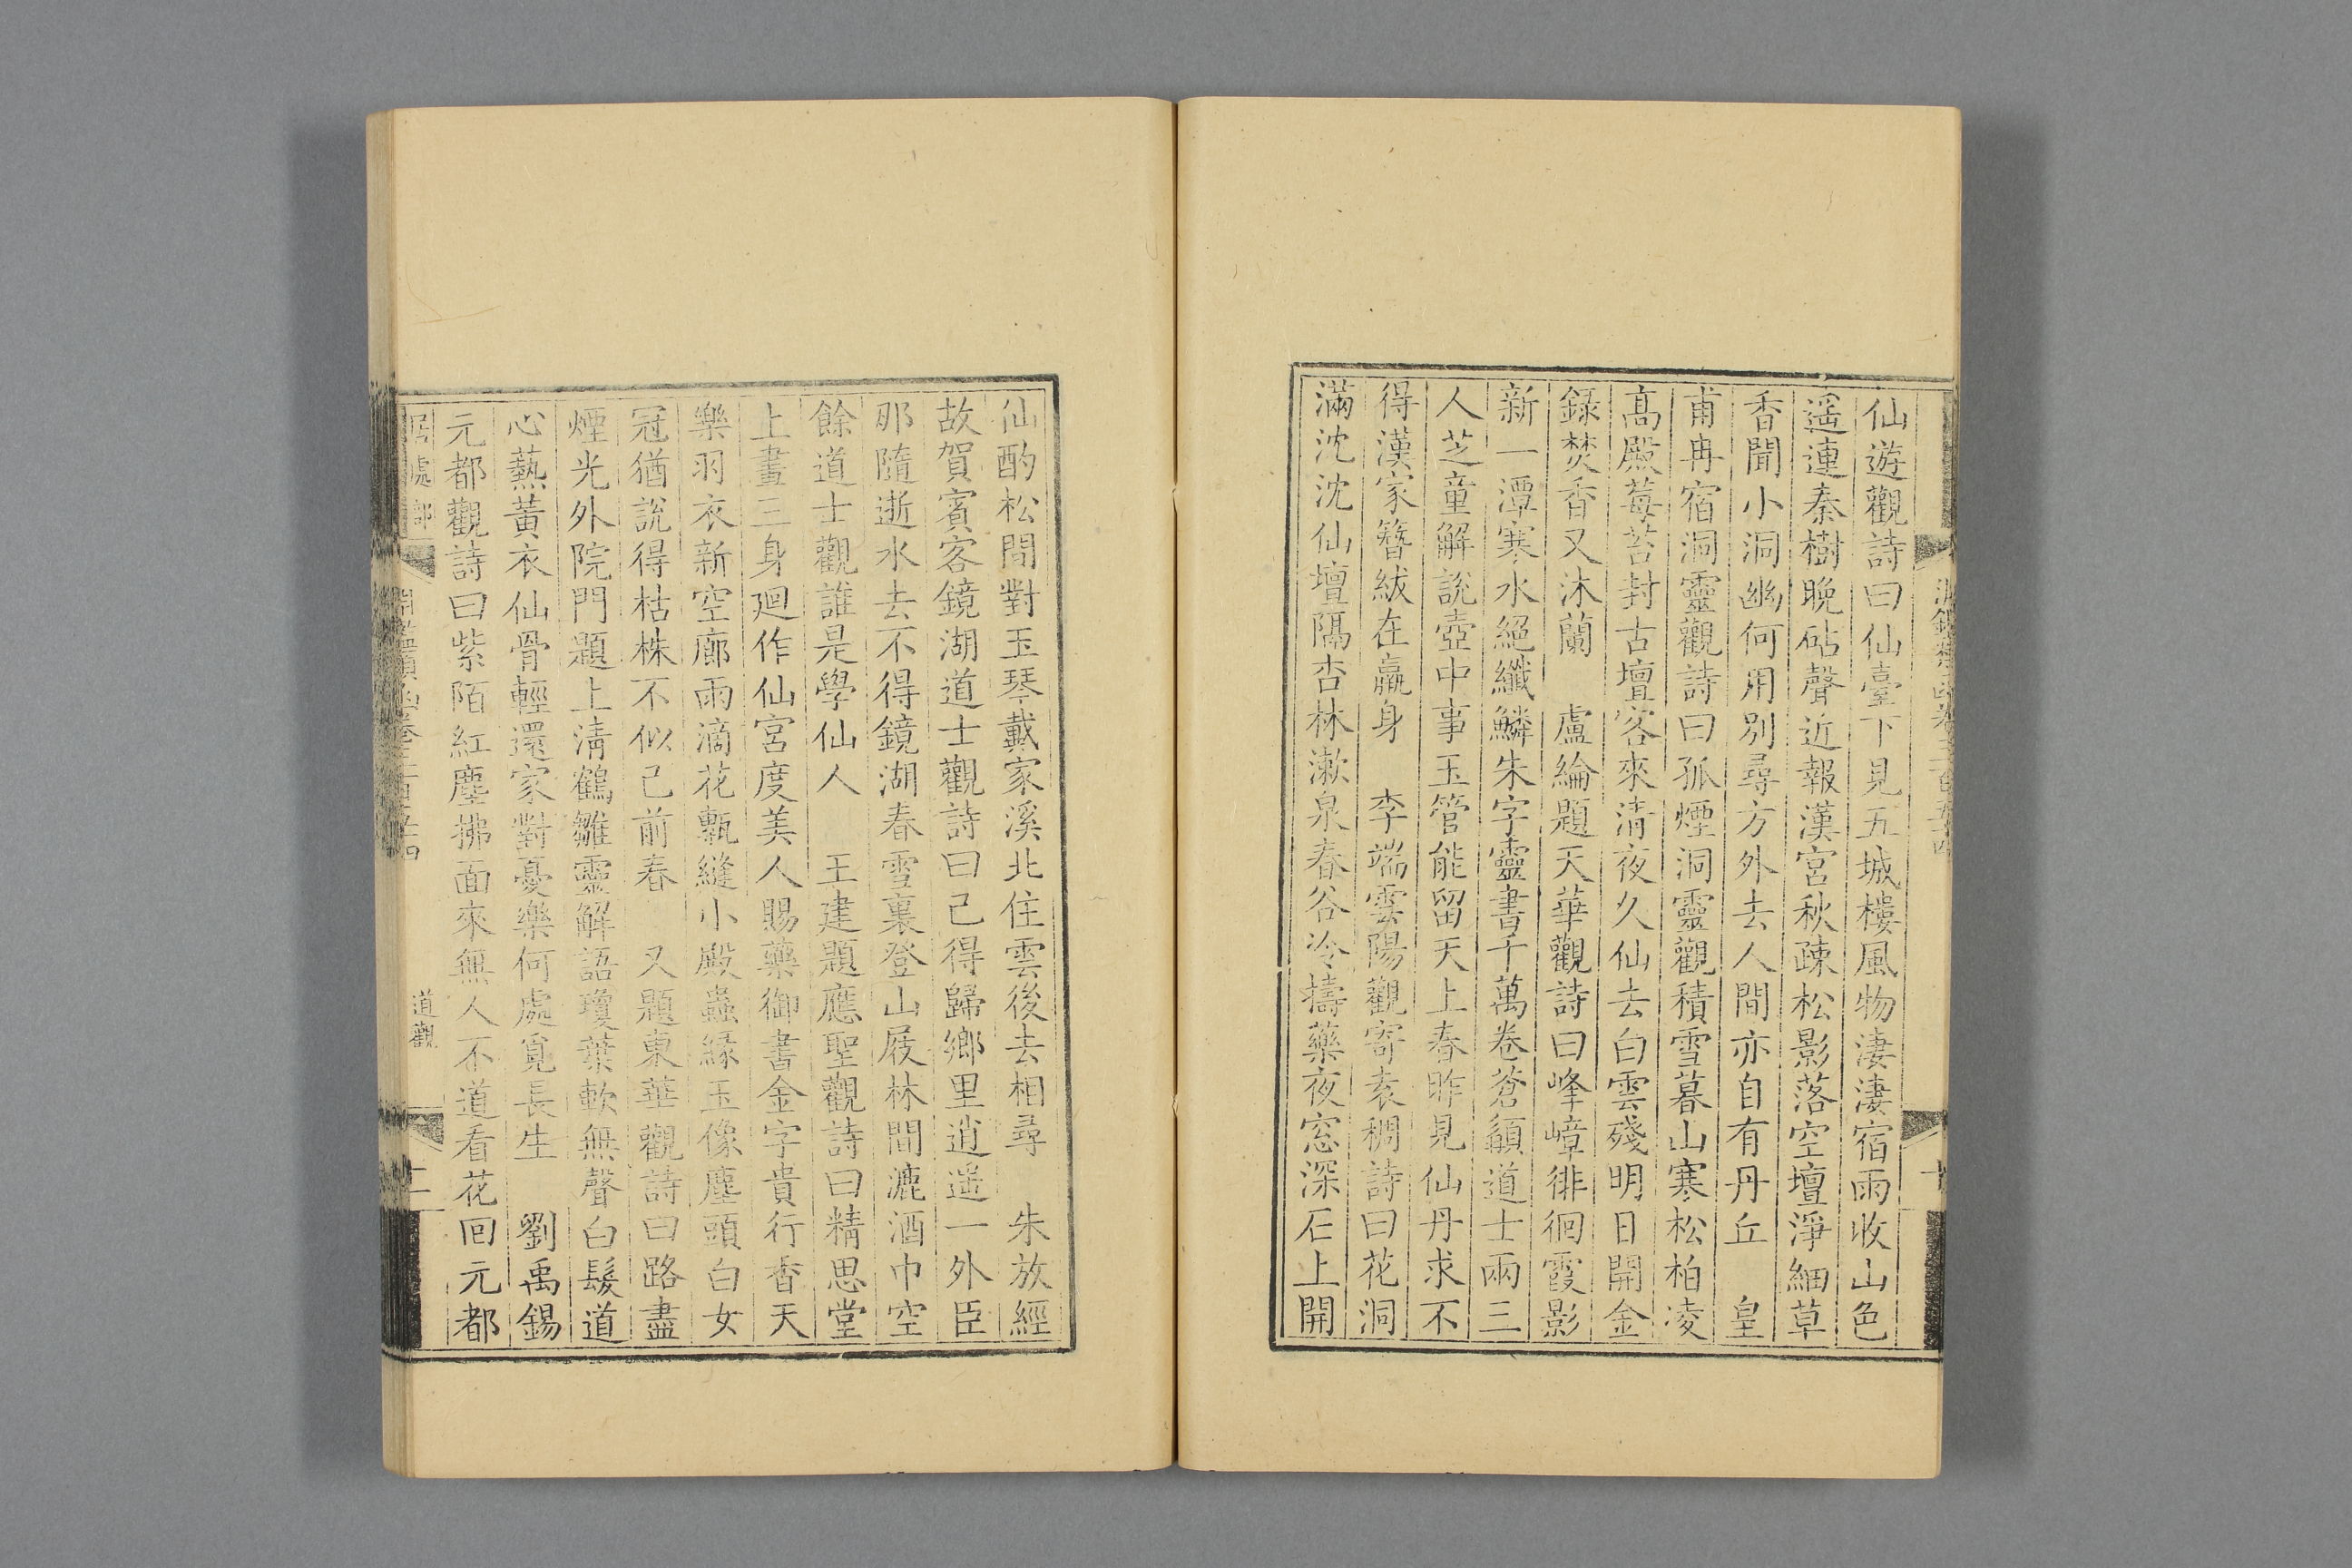 仙遊觀詩曰仙臺下見五城樓風物淒淒宿雨收山色
遥連秦樹晚砧聲近報漢宮秋疎松影落空壇淨細草
香聞小洞幽何用別尋方外去人間亦自有丹丘　皇
甫冉宿洞靈觀詩曰孤煙洞靈觀積雪暮山寒松柏凌
高殿莓苔封古壇客來清夜久仙去白雲殘明日開金
錄焚香又沐蘭　盧綸題天華觀詩曰峰嶂徘徊霞影
新一潭寒水絕纖鱗朱字靈書千萬卷蒼顏道士兩三
人芝童解說壺中事玉管能留天上春昨見仙丹求不
得漢家簪紱在羸身　李端雲陽觀寄袁稠詩曰花洞
滿沈沈仙壇隔杏林漱泉春谷冷擣藥夜窓深石上開
仙酌松間對玉琴戴家溪北住雲後去相尋　朱放經
故賀賓客鏡湖道士觀詩曰已得歸鄉里逍遥一外臣
那隨逝水去不得鏡湖春雪裏登山屐林間漉酒巾空
餘道士觀誰是學仙人　王建題應聖觀詩曰精思堂
上畫三身廻作仙宮度美人賜藥御書金字貴行香天
樂羽衣新空廊雨滴花甎縫小殿蟲緣玉像塵頭白女
冠猶說得枯株不似已前春　又題東華觀詩曰路盡
煙光外院門題上清鶴雛靈解語瓊葉軟無聲白髮道
心熱黃衣仙骨輕還家對憂樂何處覓長生　劉禹錫
元都觀詩曰紫陌紅塵拂面來無人不道看花回元都
居處部　淵鑑類函卷三百五十四　道觀